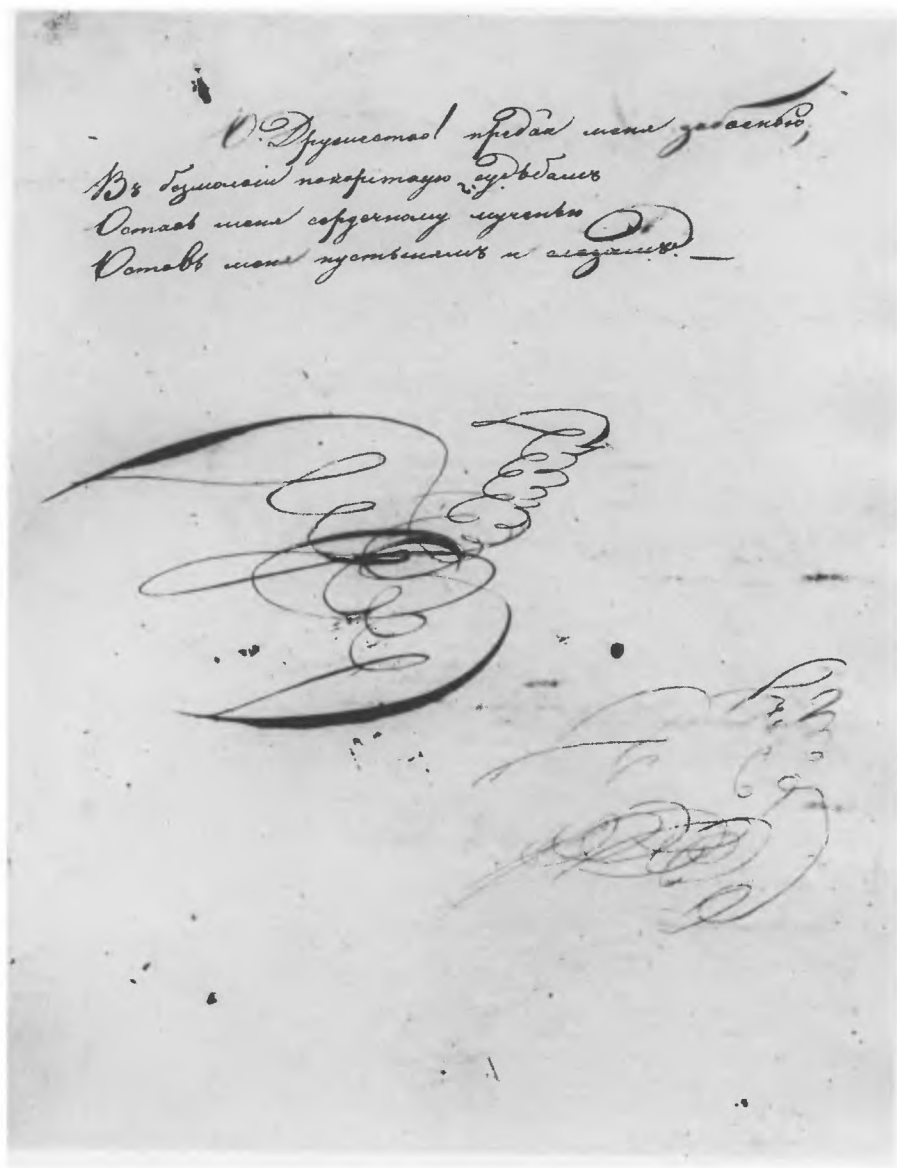 О Дружество! предай меня забвенью,
Въ безмолвіи покорствую судьбамъ
Оставь меня сердечному мученью
Оставь меня пустынямъ и слезамъ. —